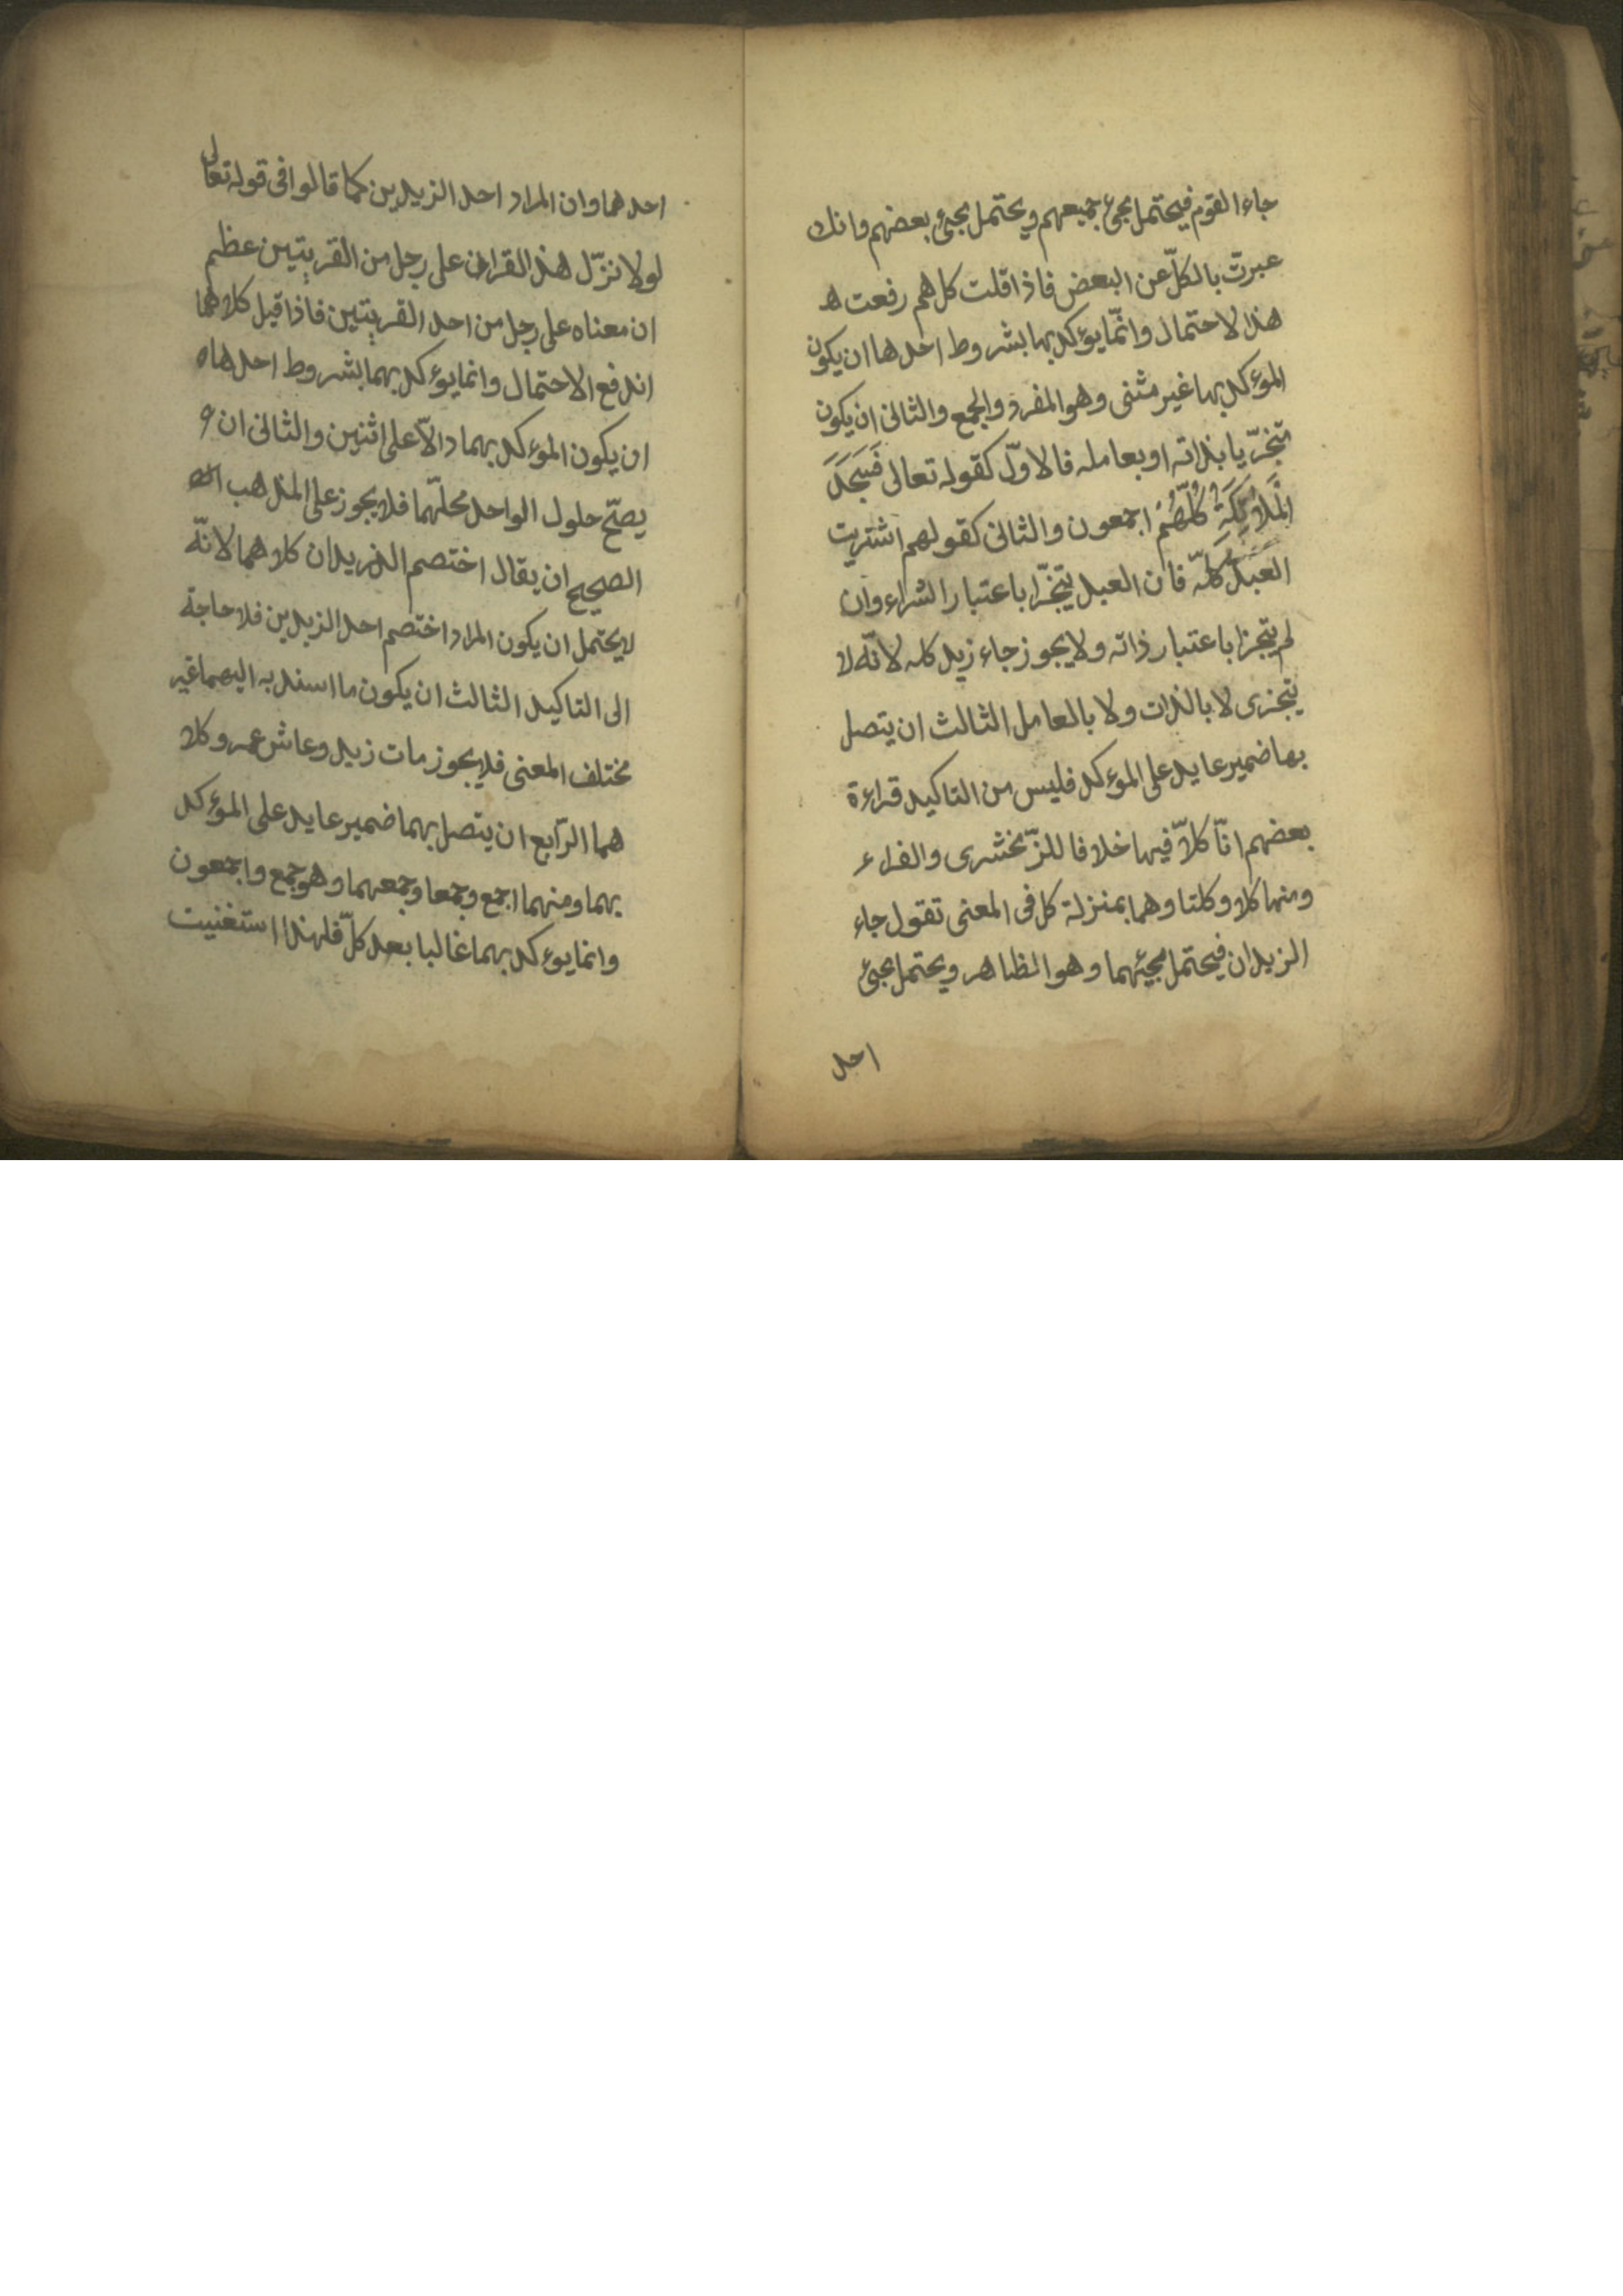 جاء القوم فيحتمل مجئ جميعهم ويحتمل مجئ بعضهم وانك
عبرت بالكلّ عن البعض فاذا قلت كل هم رفعت ه
هذا لاحتمال وانّما يؤكد بها بشروط احدها ان يكون
المؤكد بها غير مثنى وهو المفرد والجمع والثانى ان يكون
متجزّيا بذاته او بعامله فالاوّل كقوله تعالى فَسَجَدَ
الْمَلَائِكَةِ كُلُّهُمْ اجمعون والثانى كقولهم اشتريت
العَبْدَ كُلّه فان العبد يتجزّا باعتبار الشراء وان
لم يتجزا باعتبار ذاته ولا يجوز جاء زيد كله لانّه لا
يتجزى لا بالذات ولا بالعامل الثالث ان يتصل
بها ضمير عايد على المؤكد فليس من التاكيد قراءة
بعضهم انّا كلاّ فيها خلافا للزّمخشرى والفراء
ومنها كلا وكلتا وهما بمنزلة كل فى المعنى تقول جاء
الزيدان فيحتمل مجيئهما وهو الظاهر ويحتمل مجئ
احد
احدهما وان المراد احد الزيدين كما قالوا فى قوله تعالى
لولا نزّل هذا القران على رجل من القريتين عظيم
ان معناه على رجل من احد القريتين فاذا قيل كلاهما
اندفع الاحتمال وانما يؤكد بهما بشروط احدها ه
ان يكون المؤكد بهما دالاّ على اثنين والثانى ان
يصحّ حلول الواحد محلّهما فلا يجوز على المذهب
الصحيح ان يقال اختصم الزيدان كلاهما لانّه
لا يحتمل ان يكون المراد اختصم احد الزيدين فلا حاجة
الى التاكيد الثالث ان يكون ما اسند به اليهما غير
مختلف المعنى فلا يجوز مات زيد وعاش عمرو كلا
هما الرّابع ان يتصل بهما ضمير عايد على المؤكد
بهما ومنهما اجمع وجمعا وجمعهما وهو جمع واجمعون
وانما يؤكد بهما غالبا بعد كلّ فلهذا استغنيت